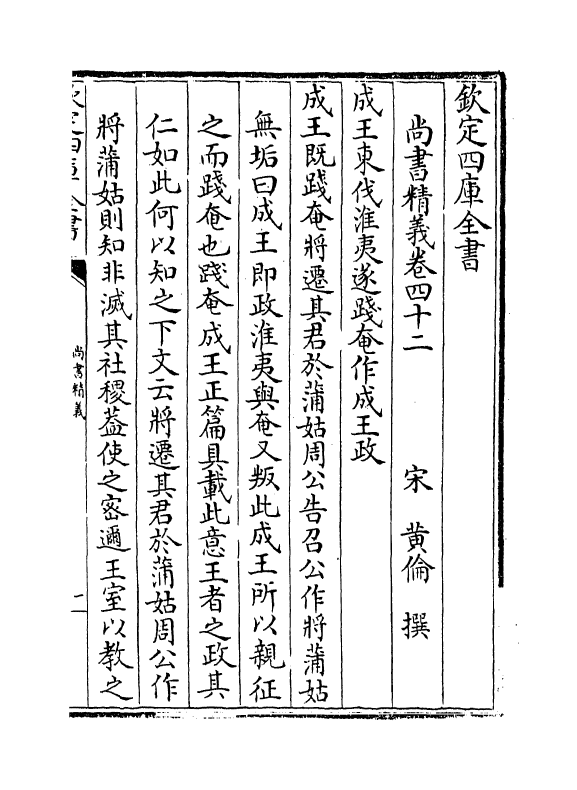 欽定四庫全書
尚書精義卷四十二　宋　黄倫　撰
成王東伐淮夷遂踐奄作成王政
成王既踐奄將遷其君於蒲姑周公告召公作將蒲姑
無垢曰成王即政淮夷與奄又叛此成王所以親征
之而踐奄也踐奄成王正篇具載此意王者之政其
仁如此何以知之下文云將遷其君於蒲姑周公作
將蒲姑則知非滅其社稷葢使之密邇王室以教之
欽定四庫全書
尚書精義